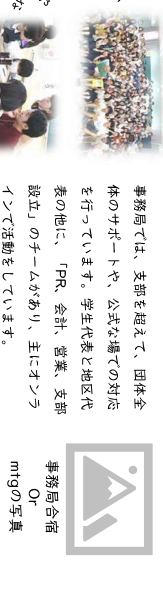 事務局では、支部を超えて、団体全
体のサポートや、公式な場での対応
を行っています。学生代表と地区代
表の他に、「PR、会計、営業、支部
設立」のチームがあり、主にオンラ
インで活動をしています。
事務局合宿
Or
mtgの写真